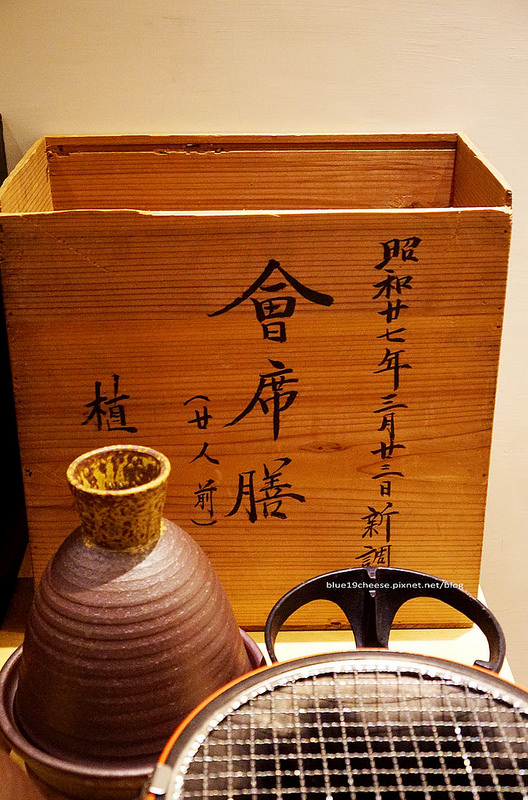 昭和廿七年三月廿三日新調
會席膳
(廿人前)
植
blue19cheese.pixnet.net/blog